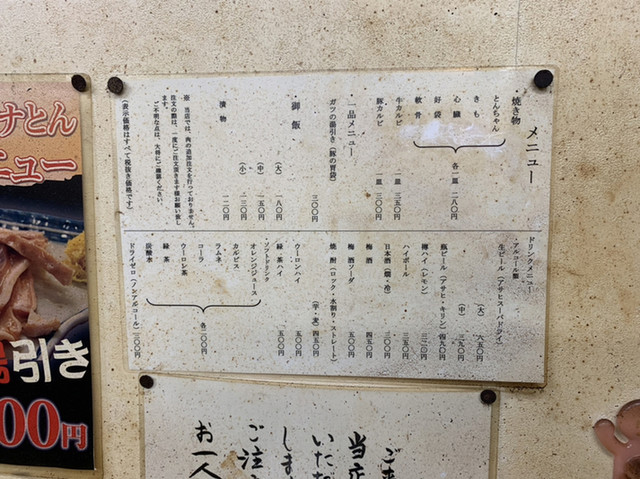 メニュー
・焼き物
とんちゃん
きも
心臓
好袋
軟骨
各一皿 二八〇円
牛カルビ 一皿 三五〇円
豚カルビ 一皿 三〇〇円
・一品メニュー
ガツの湯引き(豚の胃袋) 三〇〇円
・御飯
(大) 一八〇円
(中) 一五〇円
(小) 一三〇円
漬物 一二〇円
※ 当店では、肉の追加注文を行っておりません。
注文の際は、一度にご注文頂きます様お願い致し
ます。
ご不明な点は、大将にご確認ください。
(表示価格はすべて税抜き価格です)
ドリンクメニュー
・アルコール類
生ビール(アサヒスーパードライ)
(大) 六五〇円
(中) 三九〇円
瓶ビール(アサヒ・キリン) 四九〇円
樽ハイ(レモン) 三二〇円
ハイボール 三五〇円
日本酒(燗・冷) 三〇〇円
梅酒 四五〇円
梅酒ソーダ 五〇〇円
焼酎(ロック・水割り・ストレート)
(芋・麦) 四五〇円
ウーロンハイ 五〇〇円
緑茶ハイ 五〇〇円
・ソフトドリンク
オレンジジュース
カルピス
ラムネ
コーラ
ウーロン茶
緑茶
炭酸水
各二〇〇円
ドライゼロ(ノンアルコール) 三〇〇円
ナとん
ニュー
引き
00円
ご来
当店
いただ
しま
ご注
お一人